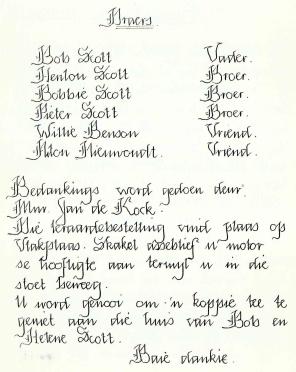 Draers.
Bob Scott Vader.
Henton Scott Broer.
Bobbie Scott Broer.
Pieter Scott Broer.
Willie Benson Vriend.
Adon Nieuwoudt. Vriend.
Bedankings word gedoen deur
Mnr. Jan de Kock.
Die teraardebestelling vind plaas op
Vlakplaas. Skakel asseblief u motor
se hoofligte aan terwyl u in die
stoet beweeg.
U word genooi om 'n koppie tee te
geniet aan die huis van Bob en
Helene Scott.
Baie dankie.